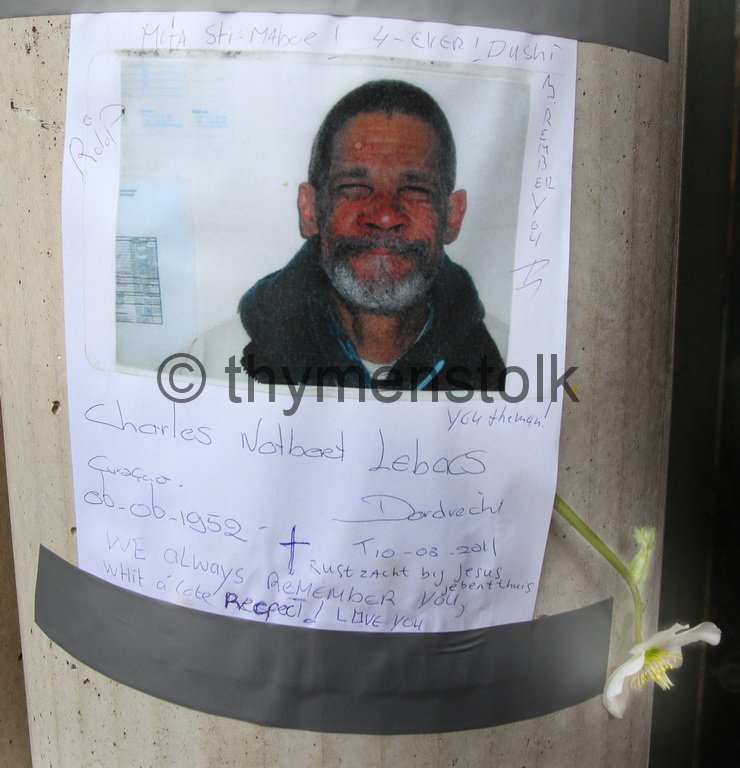 Mita Sti: Maboe! 4-EVER! Dushi
REMEMBER YOU
© thymenstolk
You the man!
Charles Notbert Lebacs
Curaçao.
06-06-1952 - Dordrecht
† 10-03-2011
WE alwAYS ReMEMBER YOU,
RUST ZACHT by Jesus
jebentthuis
WHit a late Recpect! LOVE YOU